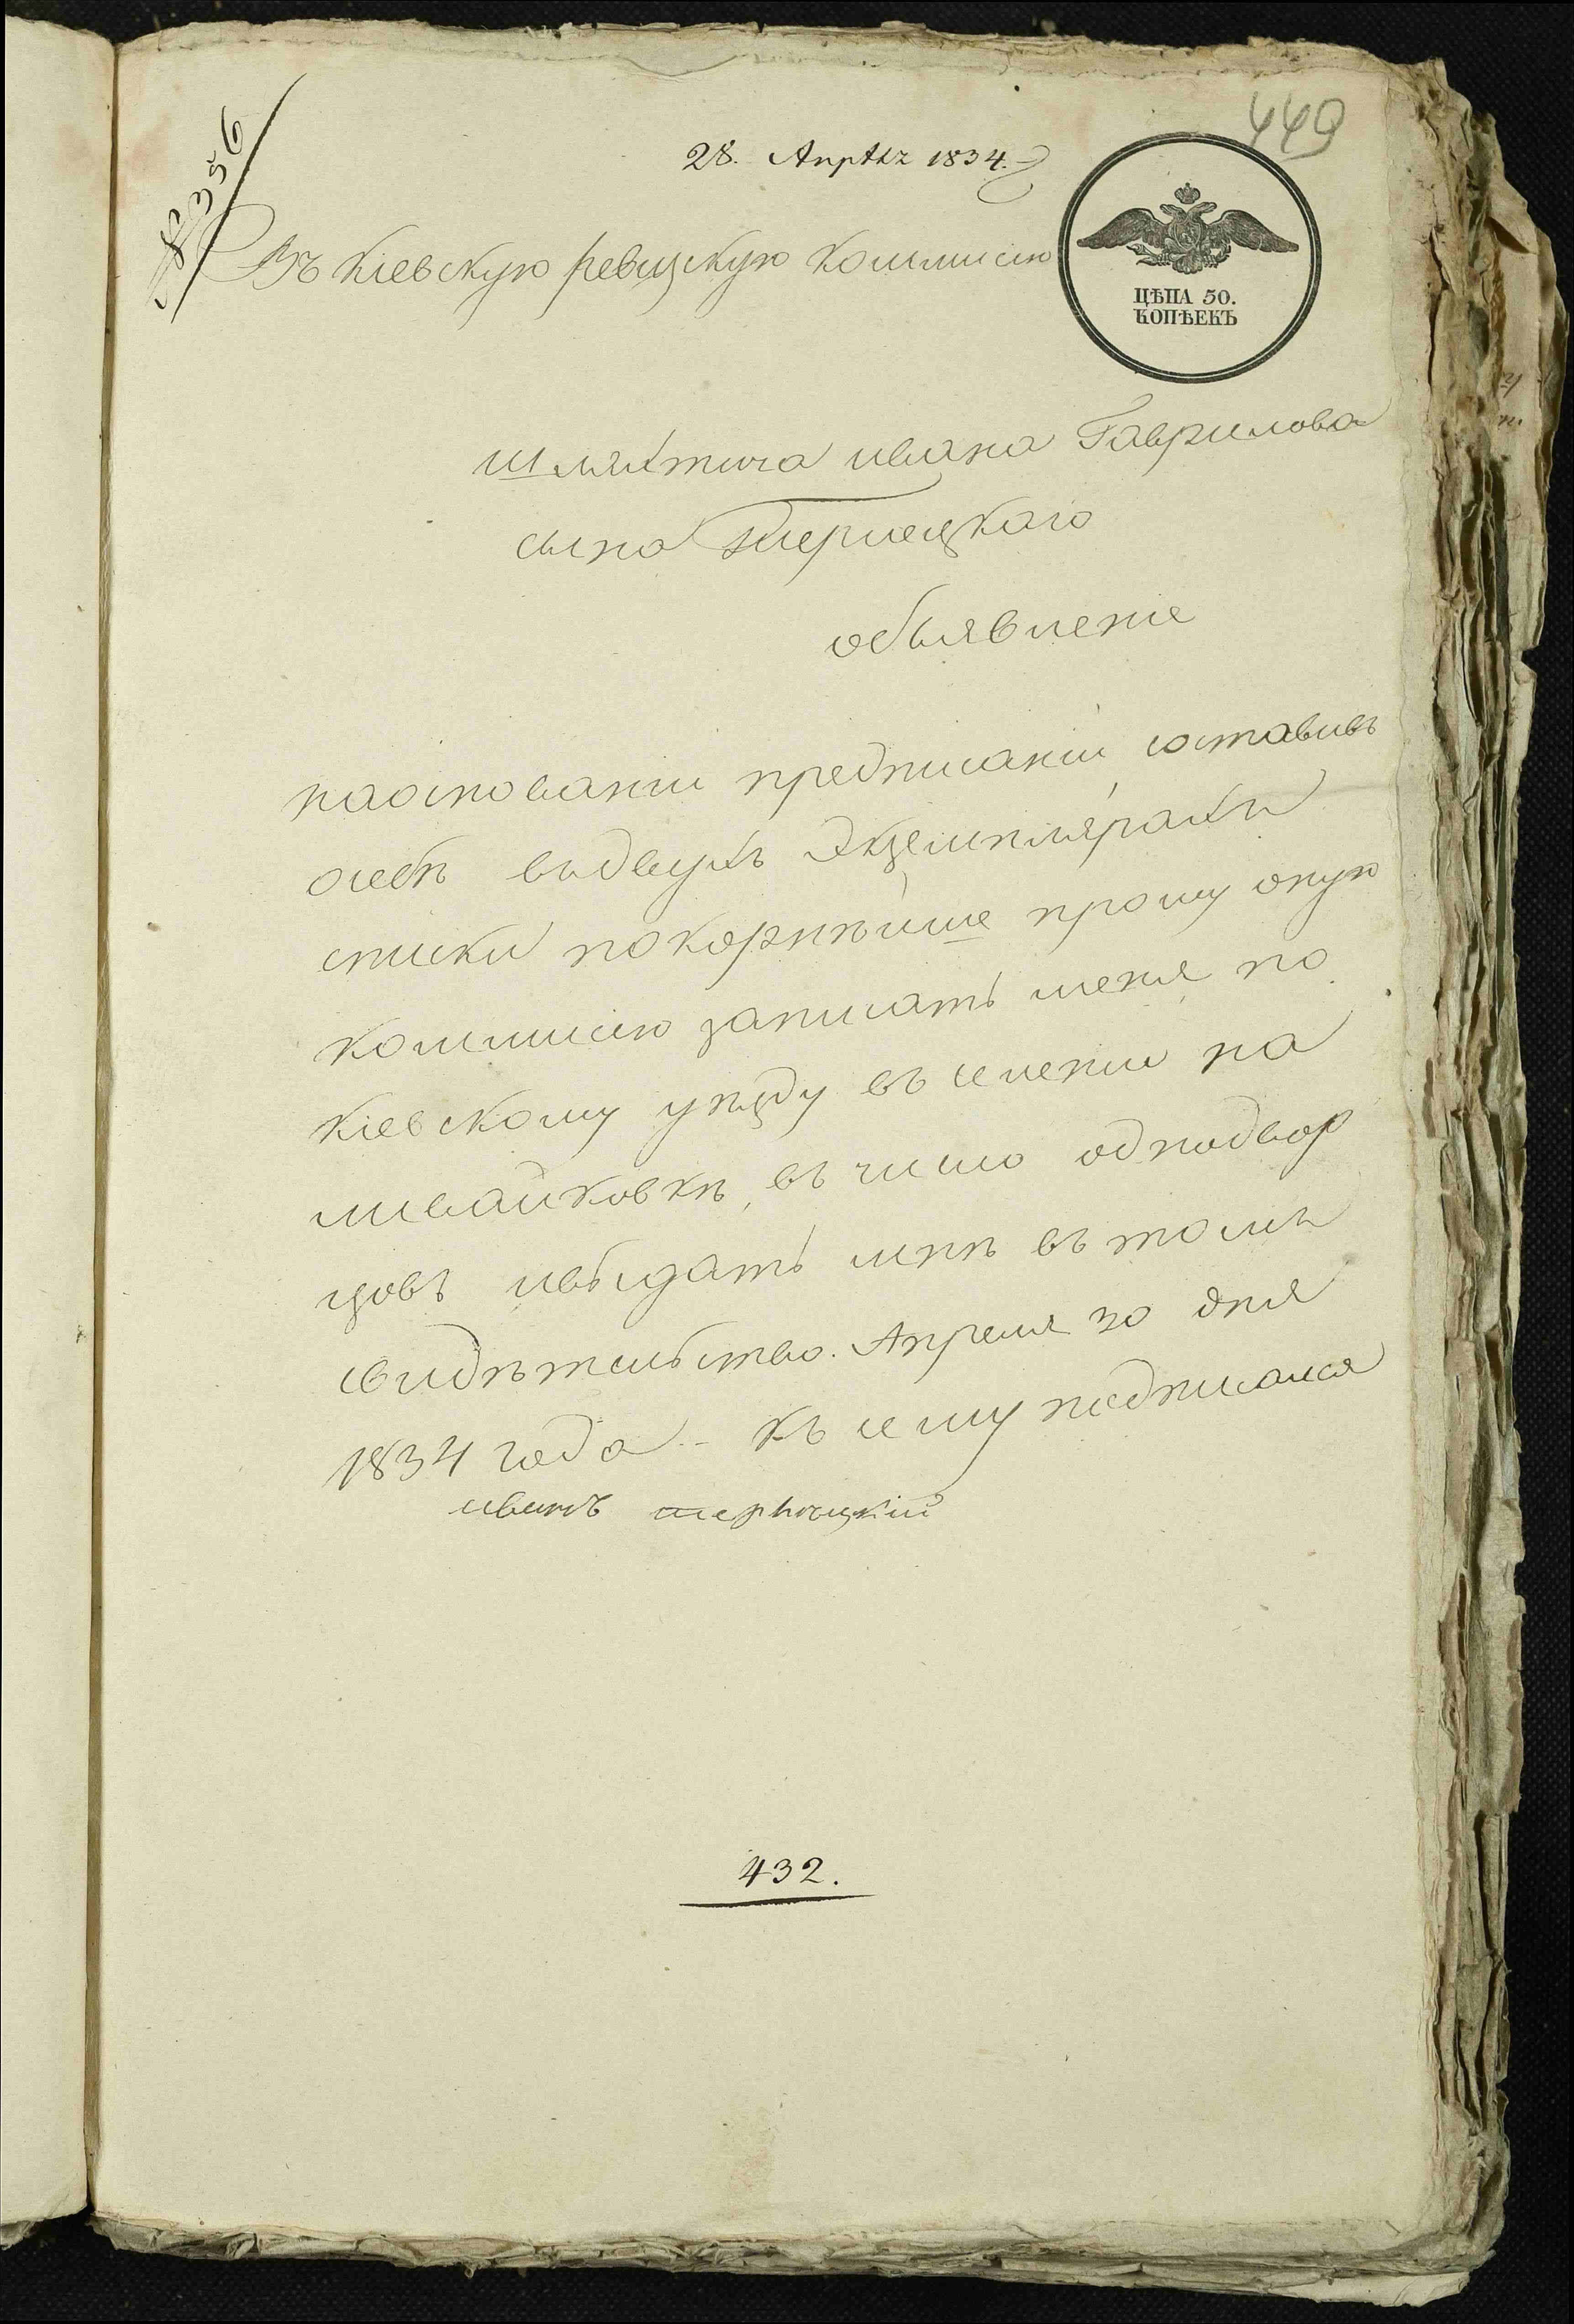 449
№ 356
28. Апрѣлz 1834.
Въ Кіевскую ревизскую Коммисію
ЦѢНА 50.
КОПѢЕКЪ
шляхтича ивана Гаврилова
сына Тернецкаго
объявленіе
наоснованіи предписаніи составивъ
осебѣ выдвухъ Экземплярахъ
списки покорнѣйше прошу оную
коммисію записать меня по
Кіевскому уѣзду въ селеніи на
ливайковкѣ, въ число однодвор
цовъ ивыдать мнѣ въ томъ
свидѣтельство. Апреля 30 дня
1834 года - Къ сему подписался
иванъ тернецкій
432.